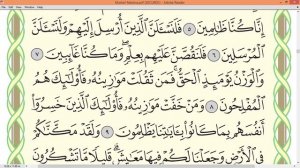 Mushaf Madina.pdf (SECURED) - Adobe Reader
إِنَّا كُنَّا ظَٰلِمِينَ ٥ فَلَنَسْـَٔلَنَّ ٱلَّذِينَ أُرْسِلَ إِلَيْهِمْ وَلَنَسْـَٔلَنَّ
ٱلْمُرْسَلِينَ ٦ فَلَنَقُصَّنَّ عَلَيْهِم بِعِلْمٍ وَمَا كُنَّا غَآئِبِينَ ٧
وَٱلْوَزْنُ يَوْمَئِذٍ ٱلْحَقُّ فَمَن ثَقُلَتْ مَوَٰزِينُهُۥ فَأُو۟لَٰٓئِكَ هُمُ
ٱلْمُفْلِحُونَ ٨ وَمَنْ خَفَّتْ مَوَٰزِينُهُۥ فَأُو۟لَٰٓئِكَ ٱلَّذِينَ خَسِرُوٓا۟
أَنفُسَهُم بِمَا كَانُوا۟ بِـَٔايَٰتِنَا يَظْلِمُونَ ٩ وَلَقَدْ مَكَّنَّٰكُمْ
فِى ٱلْأَرْضِ وَجَعَلْنَا لَكُمْ فِيهَا مَعَٰيِشَ قَلِيلًا مَّا تَشْكُرُونَ